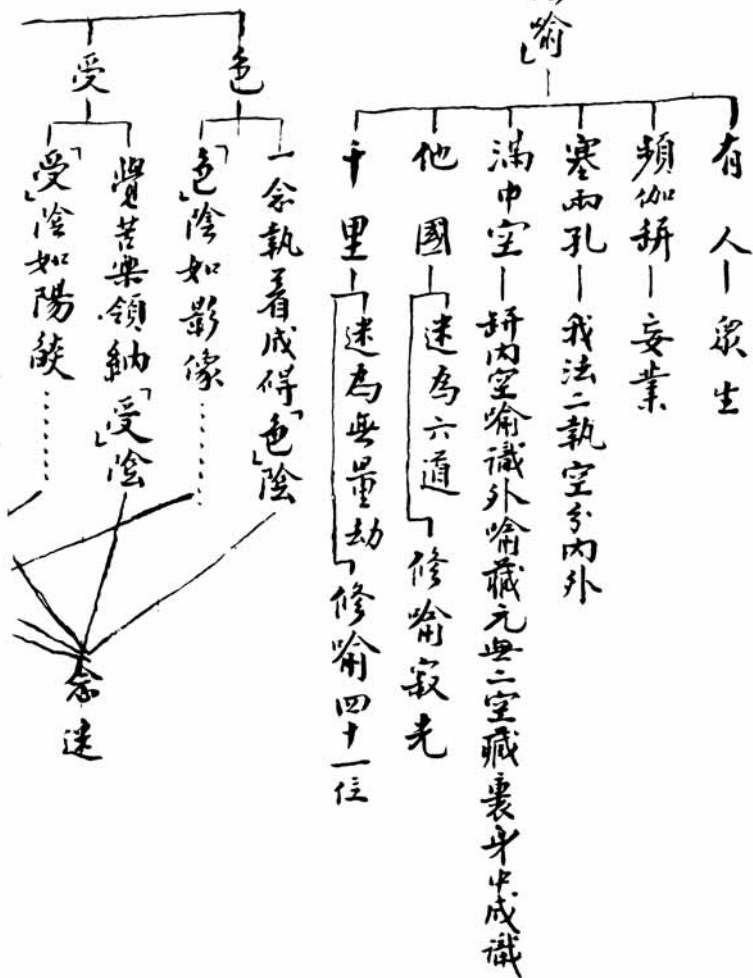 喻」
有人—眾生
頻伽缾—妄業
塞兩孔—我法二執空分內外
滿中空—缾內空喻識外喻藏元無二空藏裹身中成識
他國—迷為六道
修喻寂光
千里—迷為無量劫
修喻四十一位
色
一念執着成碍「色」陰
「色」陰如影像……
受
覺苦樂領納「受」陰
「受」陰如陽燄……
念迷